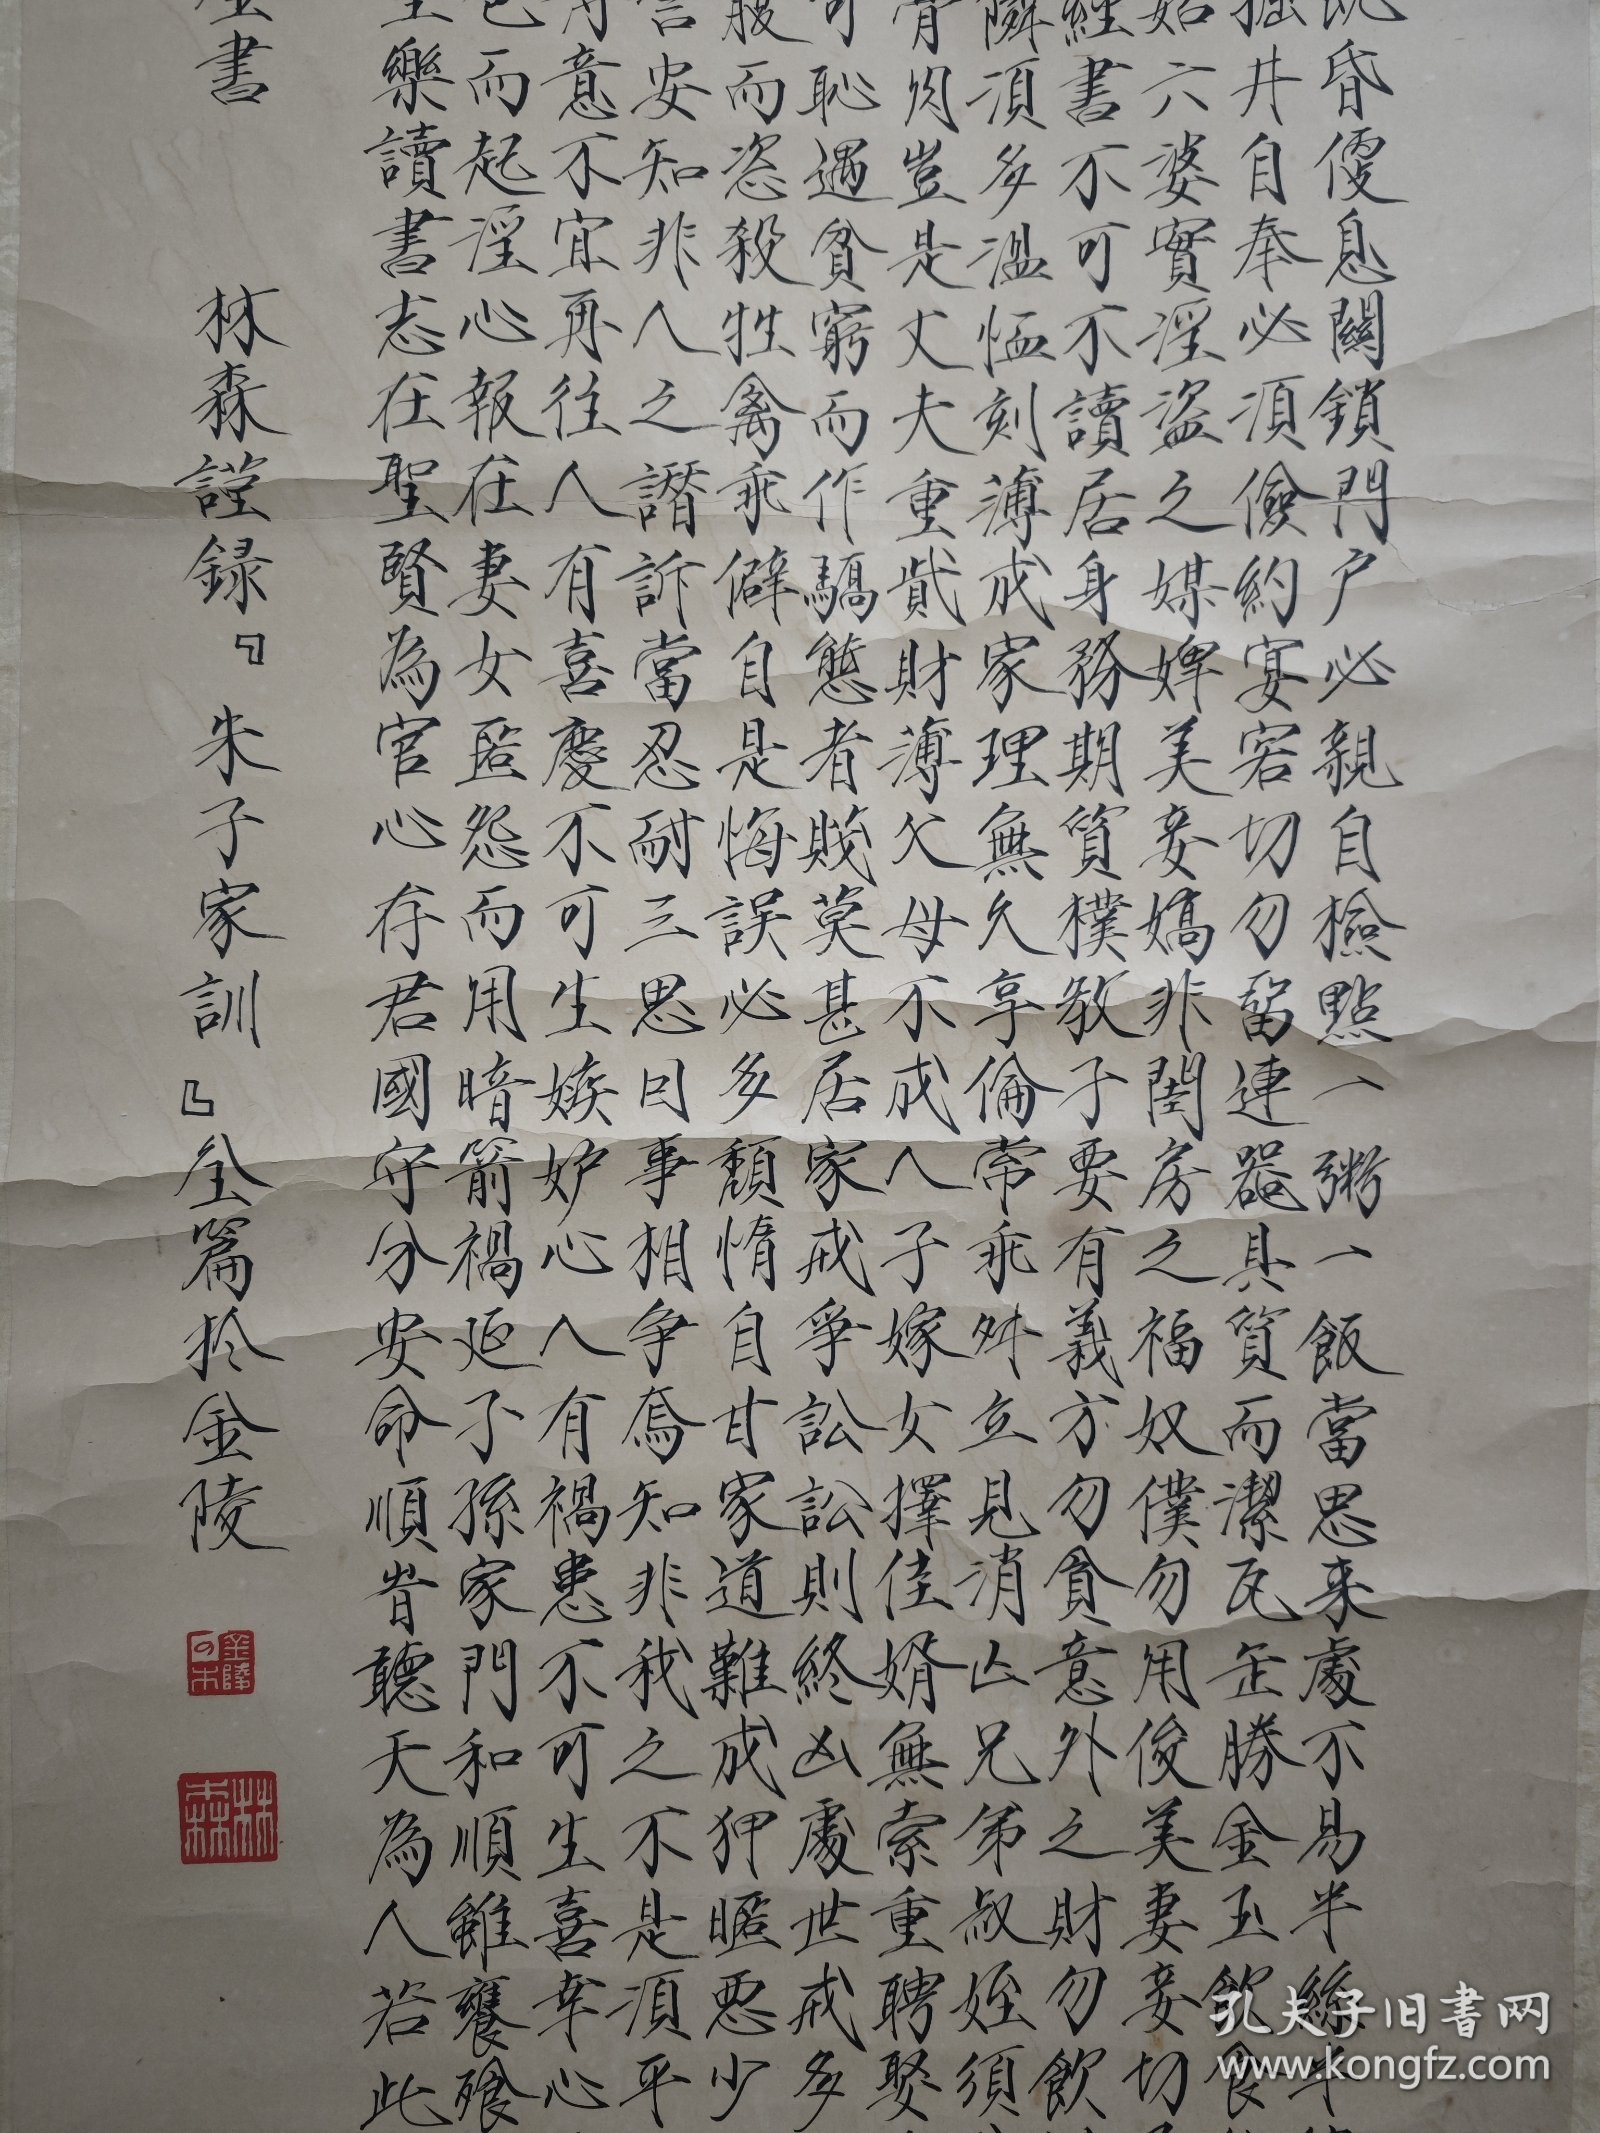 既昏便息關鎖門户必親自檢點一粥一飯當思来處不易半絲半
掘井自奉必須儉約宴客切勿留連器具質而潔瓦缶勝金玉飲食
姑六婆實淫盜之媒婢美妾嬌非閨房之福奴僕勿用俊美妻妾切
經書不可不讀居身務期質樸教子要有義方勿貪意外之財勿飲
隣須多溫恤刻薄成家理無久享倫常乖舛立見消亡兄弟叔姪須
骨肉豈是丈夫重貲財薄父母不成人子嫁女擇佳婿無索重聘娶
可恥遇貧窮而作驕態者賤莫甚居家戒爭訟訟則終凶處世戒多
腹而恣殺牲禽乖僻自是悔誤必多頹惰自甘家道難成狎暱惡少
言安知非人之譖訴當忍耐三思因事相争焉知非我之不是須平
意不宜再往人有喜慶不可生嫉妒心人有禍患不可生喜幸心
色而起淫心報在妻女匿怨而用暗箭禍延子孫家門和順雖饔飧
至樂讀書志在聖賢為官心存君國守分安命順昔聽天為人若此
書 林森謹録『朱子家訓』全篇於金陵
金陵
林森
孔夫子旧書网
www.kongfz.com